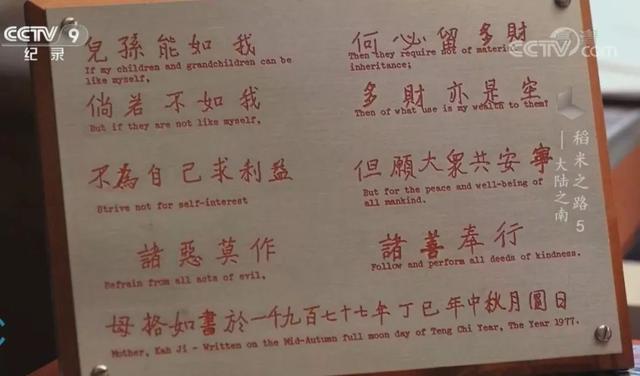 CCTV 9
纪录
CCTV.com
兒孫能如我
If my children and grandchildren can be
like myself,
何必留多財
Then they require not of material
inheritance;
倘若不如我
But if they are not like myself,
多財亦是空
Then of what use is my wealth to them?
不為自己求利益
Strive not for self-interest
但願大衆共安寧
But for the peace and well-being of
all mankind.
諸惡莫作
Refrain from all acts of evil,
諸善奉行
Follow and perform all deeds of kindness.
母格如書於一千九百七十七年丁巳年中秋月圓日
Mother, Kah Ji - Written on the Mid-Autumn full moon day of Teng Chi Year, The Year 1977.
稻米之路 5
——大陆之南